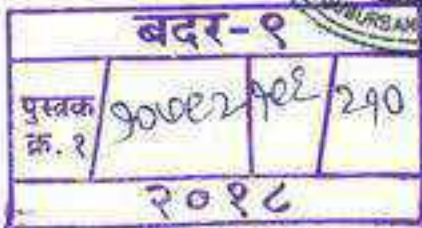 बदर-९
पुस्तक
क्र. १ १०७९२ १९६ २१०
२०१८